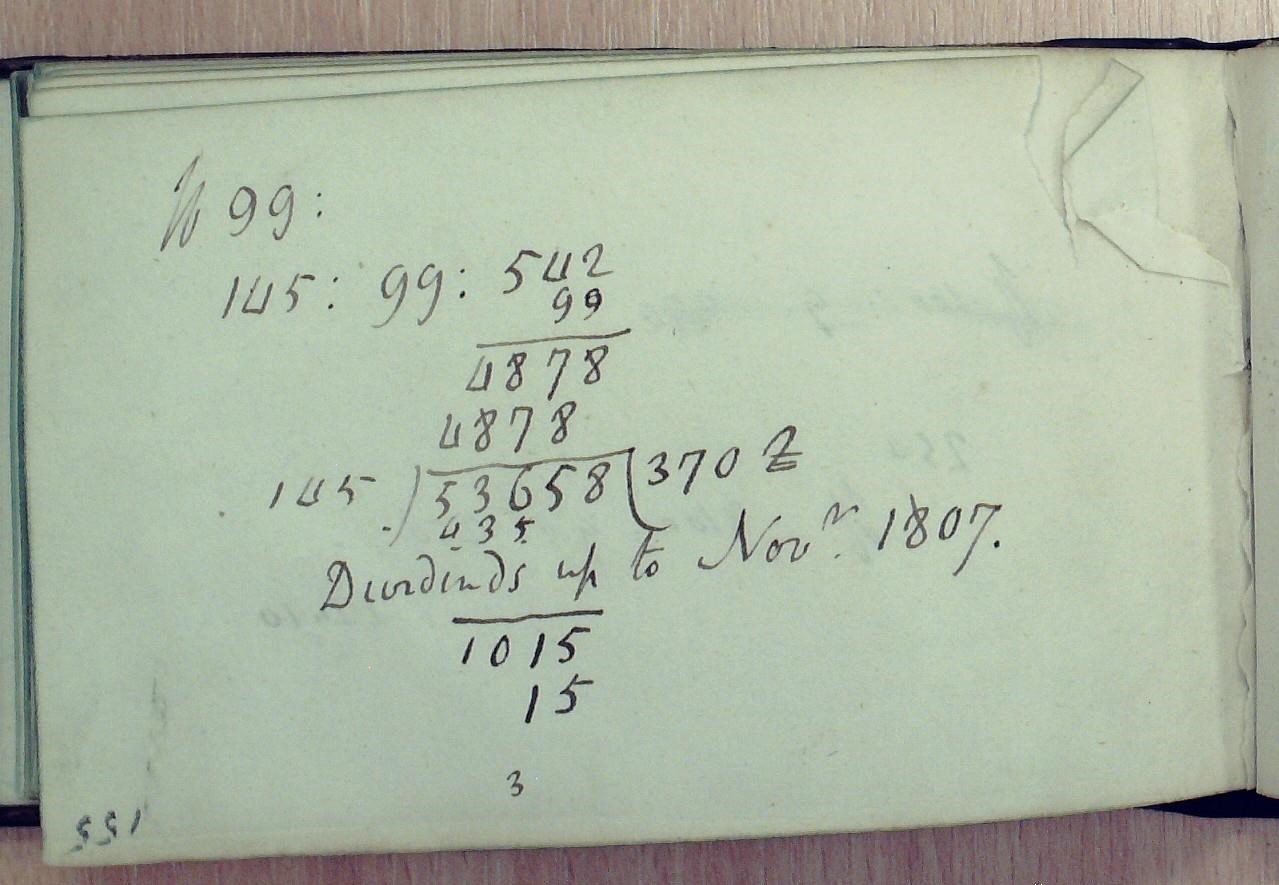 99:
145: 99: 542
99
4878
4878
145 ) 53658 ( 370
435
Dividends up to Novr. 1807.
1015
15
3
551